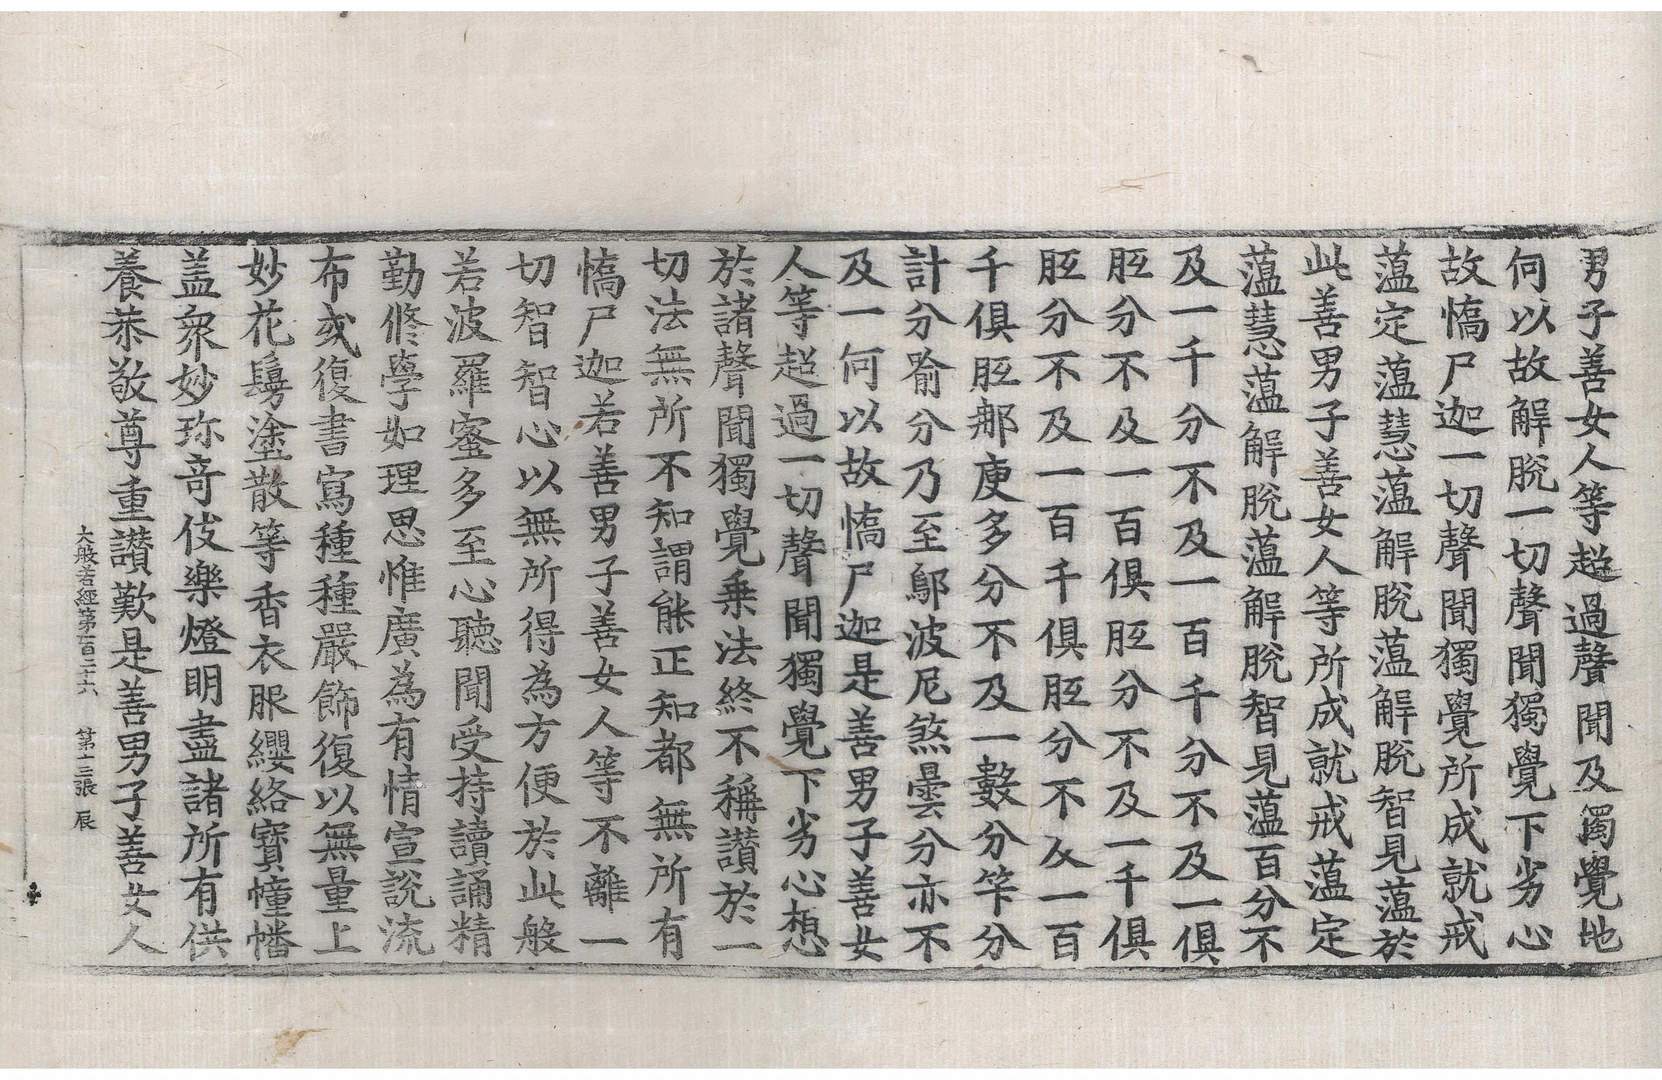 男子善女人等超過聲聞及獨覺地
何以故解脫一切聲聞獨覺下劣心
故憍尸迦一切聲聞獨覺所成就戒
蘊定蘊慧蘊解脫蘊解脫智見蘊於
此善男子善女人等所成就戒蘊定
蘊慧蘊解脫蘊解脫智見蘊百分不
及一千分不及一百千分不及一俱
胝分不及一百俱胝分不及一千俱
胝分不及一百千俱胝分不及一百
千俱胝那庾多分不及一數分筭分
計分喻分乃至鄔波尼煞曇分亦不
及一何以故憍尸迦是善男子善女
人等超過一切聲聞獨覺下劣心想
於諸聲聞獨覺乗法終不稱讃於一
切法無所不知謂能正知都無所有
憍尸迦若善男子善女人等不離一
切智智心以無所得為方便於此般
若波羅蜜多至心聽聞受持讀誦精
勤修學如理思惟廣為有情宣說流
布或復書寫種種嚴飾復以無量上
妙花鬘塗散等香衣服纓絡寶幢幡
盖衆妙珎竒伎樂燈明盡諸所有供
養恭敬尊重讃歎是善男子善女人
大般若經第一百二十六 第十三張 辰